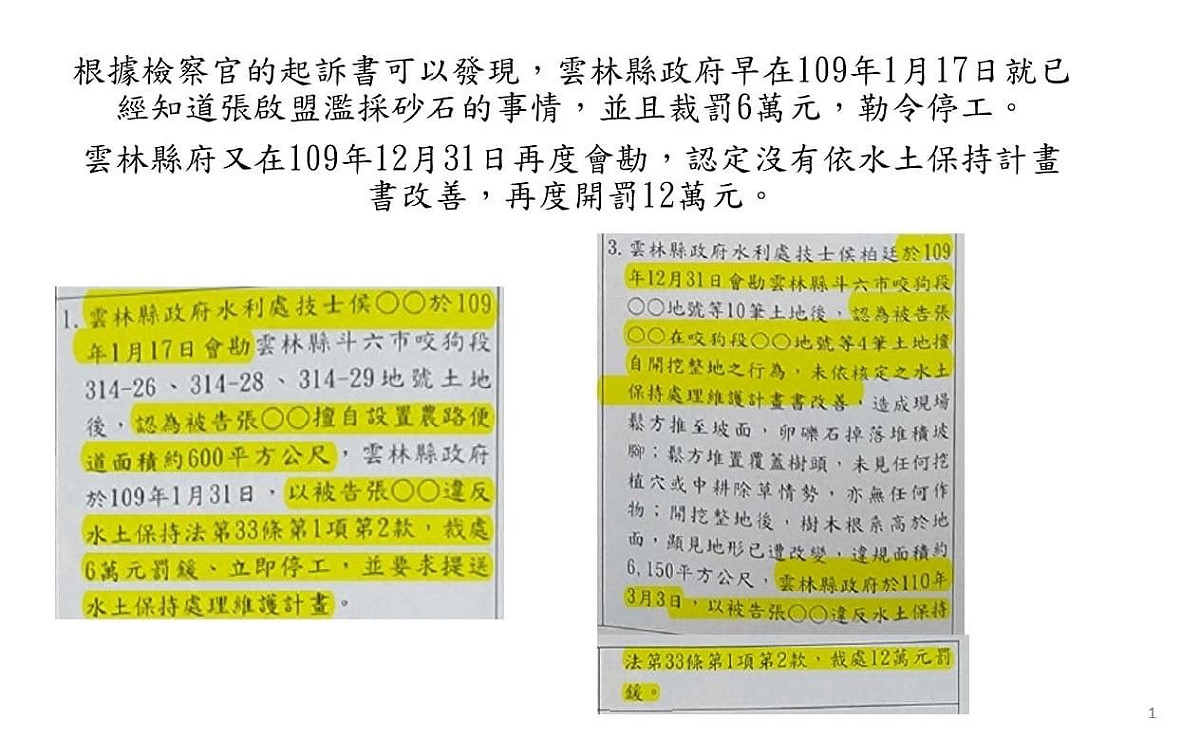 根據檢察官的起訴書可以發現，雲林縣政府早在109年1月17日就已
經知道張啟盟濫採砂石的事情，並且裁罰6萬元，勒令停工。
雲林縣府又在109年12月31日再度會勘，認定沒有依水土保持計畫
書改善，再度開罰12萬元。
1. 雲林縣政府水利處技士侯○○於109
年1月17日會勘雲林縣斗六市咬狗段
314-26、314-28、314-29地號土地
後，認為被告張○○擅自設置農路便
道面積約600平方公尺，雲林縣政府
於109年1月31日，以被告張○○違反
水土保持法第33條第1項第2款，裁處
6萬元罰鍰、立即停工，並要求提送
水土保持處理維護計畫。
3. 雲林縣政府水利處技士侯柏廷於109
年12月31日會勘雲林縣斗六市咬狗段
○○地號等10筆土地後，認為被告張
○○在咬狗段○○地號等4筆土地擅
自開挖整地之行為，未依核定之水土
保持處理維護計畫書改善，造成現場
鬆方推至坡面，卵礫石掉落堆積坡
腳；鬆方堆置覆蓋樹頭，未見任何挖
植穴或中耕除草情勢，亦無任何作
物；開挖整地後，樹木根系高於地
面，顯見地形已遭改變，違規面積約
6,150平方公尺，雲林縣政府於110年
3月3日，以被告張○○違反水土保持
法第33條第1項第2款，裁處12萬元罰
鍰。
1